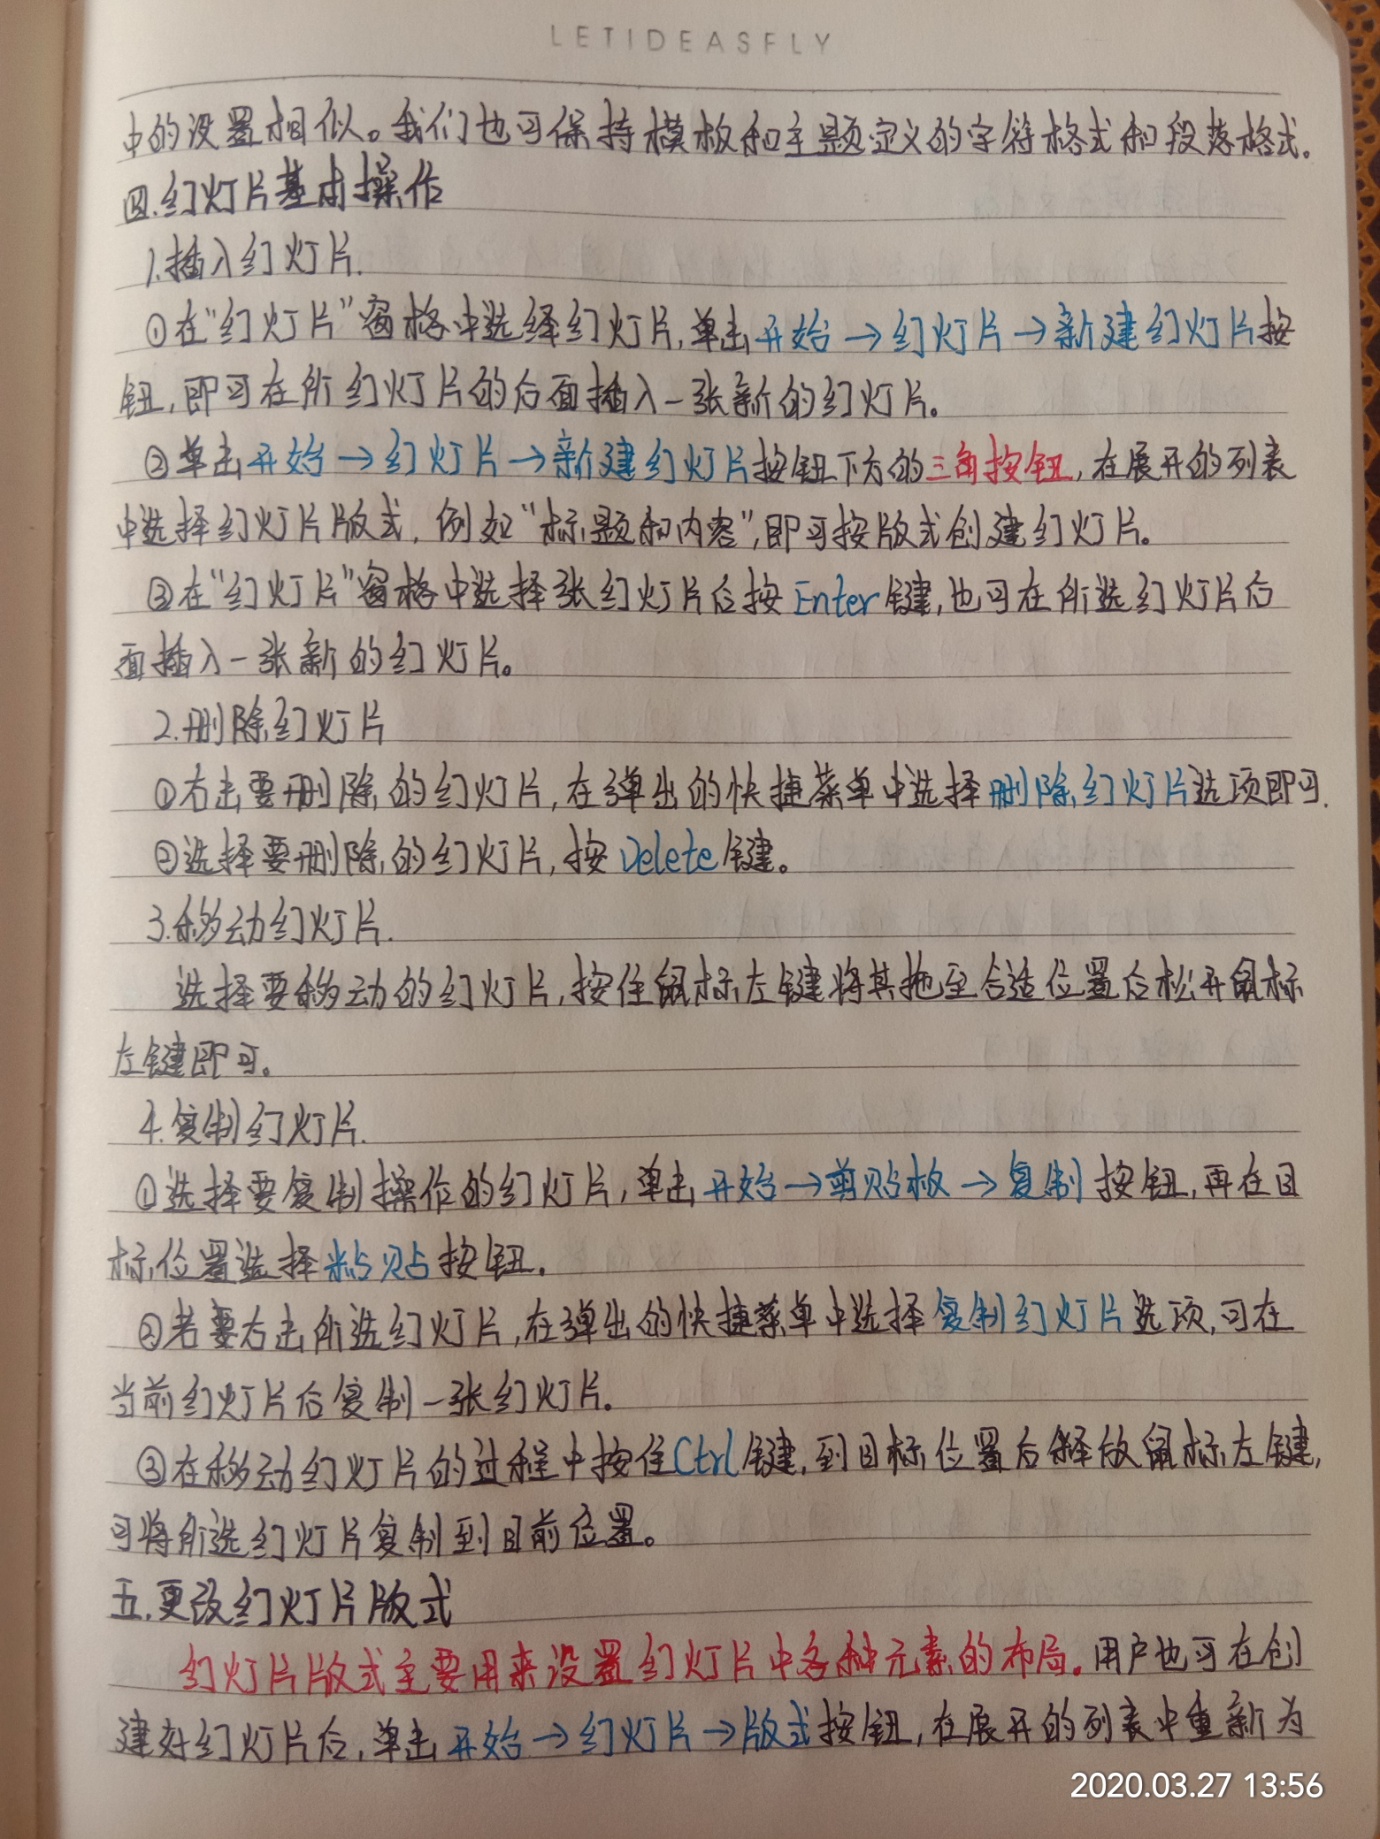 LETIDEASFLY
中的设置相似。我们也可保持模板和主题定义的字符格式和段落格式.
四.幻灯片基本操作
1.插入幻灯片.
①在“幻灯片”窗格中选择幻灯片,单击开始→幻灯片→新建幻灯片按
钮,即可在所幻灯片的后面插入一张新的幻灯片。
②单击开始→幻灯片→新建幻灯片按钮下方的三角按钮,在展开的列表
中选择幻灯片版式,例如“标题和内容”,即可按版式创建幻灯片。
③在“幻灯片”窗格中选择张幻灯片后按Enter键,也可在所选幻灯片后
面插入一张新的幻灯片。
2.删除幻灯片
①右击要删除的幻灯片,在弹出的快捷菜单中选择删除幻灯片选项即可.
②选择要删除的幻灯片,按Delete键。
3.移动幻灯片.
选择要移动的幻灯片,按住鼠标左键将其拖至合适位置后松开鼠标
左键即可。
4.复制幻灯片.
①选择要复制操作的幻灯片,单击开始→剪贴板→复制按钮,再在目
标位置选择粘贴按钮.
②若要右击所选幻灯片,在弹出的快捷菜单中选择复制幻灯片选项,可在
当前幻灯片后复制一张幻灯片.
③在移动幻灯片的过程中按住Ctrl键,到目标位置后释放鼠标左键,
可将所选幻灯片复制到目前位置。
五.更改幻灯片版式
幻灯片版式主要用来设置幻灯片中各种元素的布局。用户也可在创
建好幻灯片后,单击开始→幻灯片→版式按钮,在展开的列表中重新为
2020.03.27 13:56